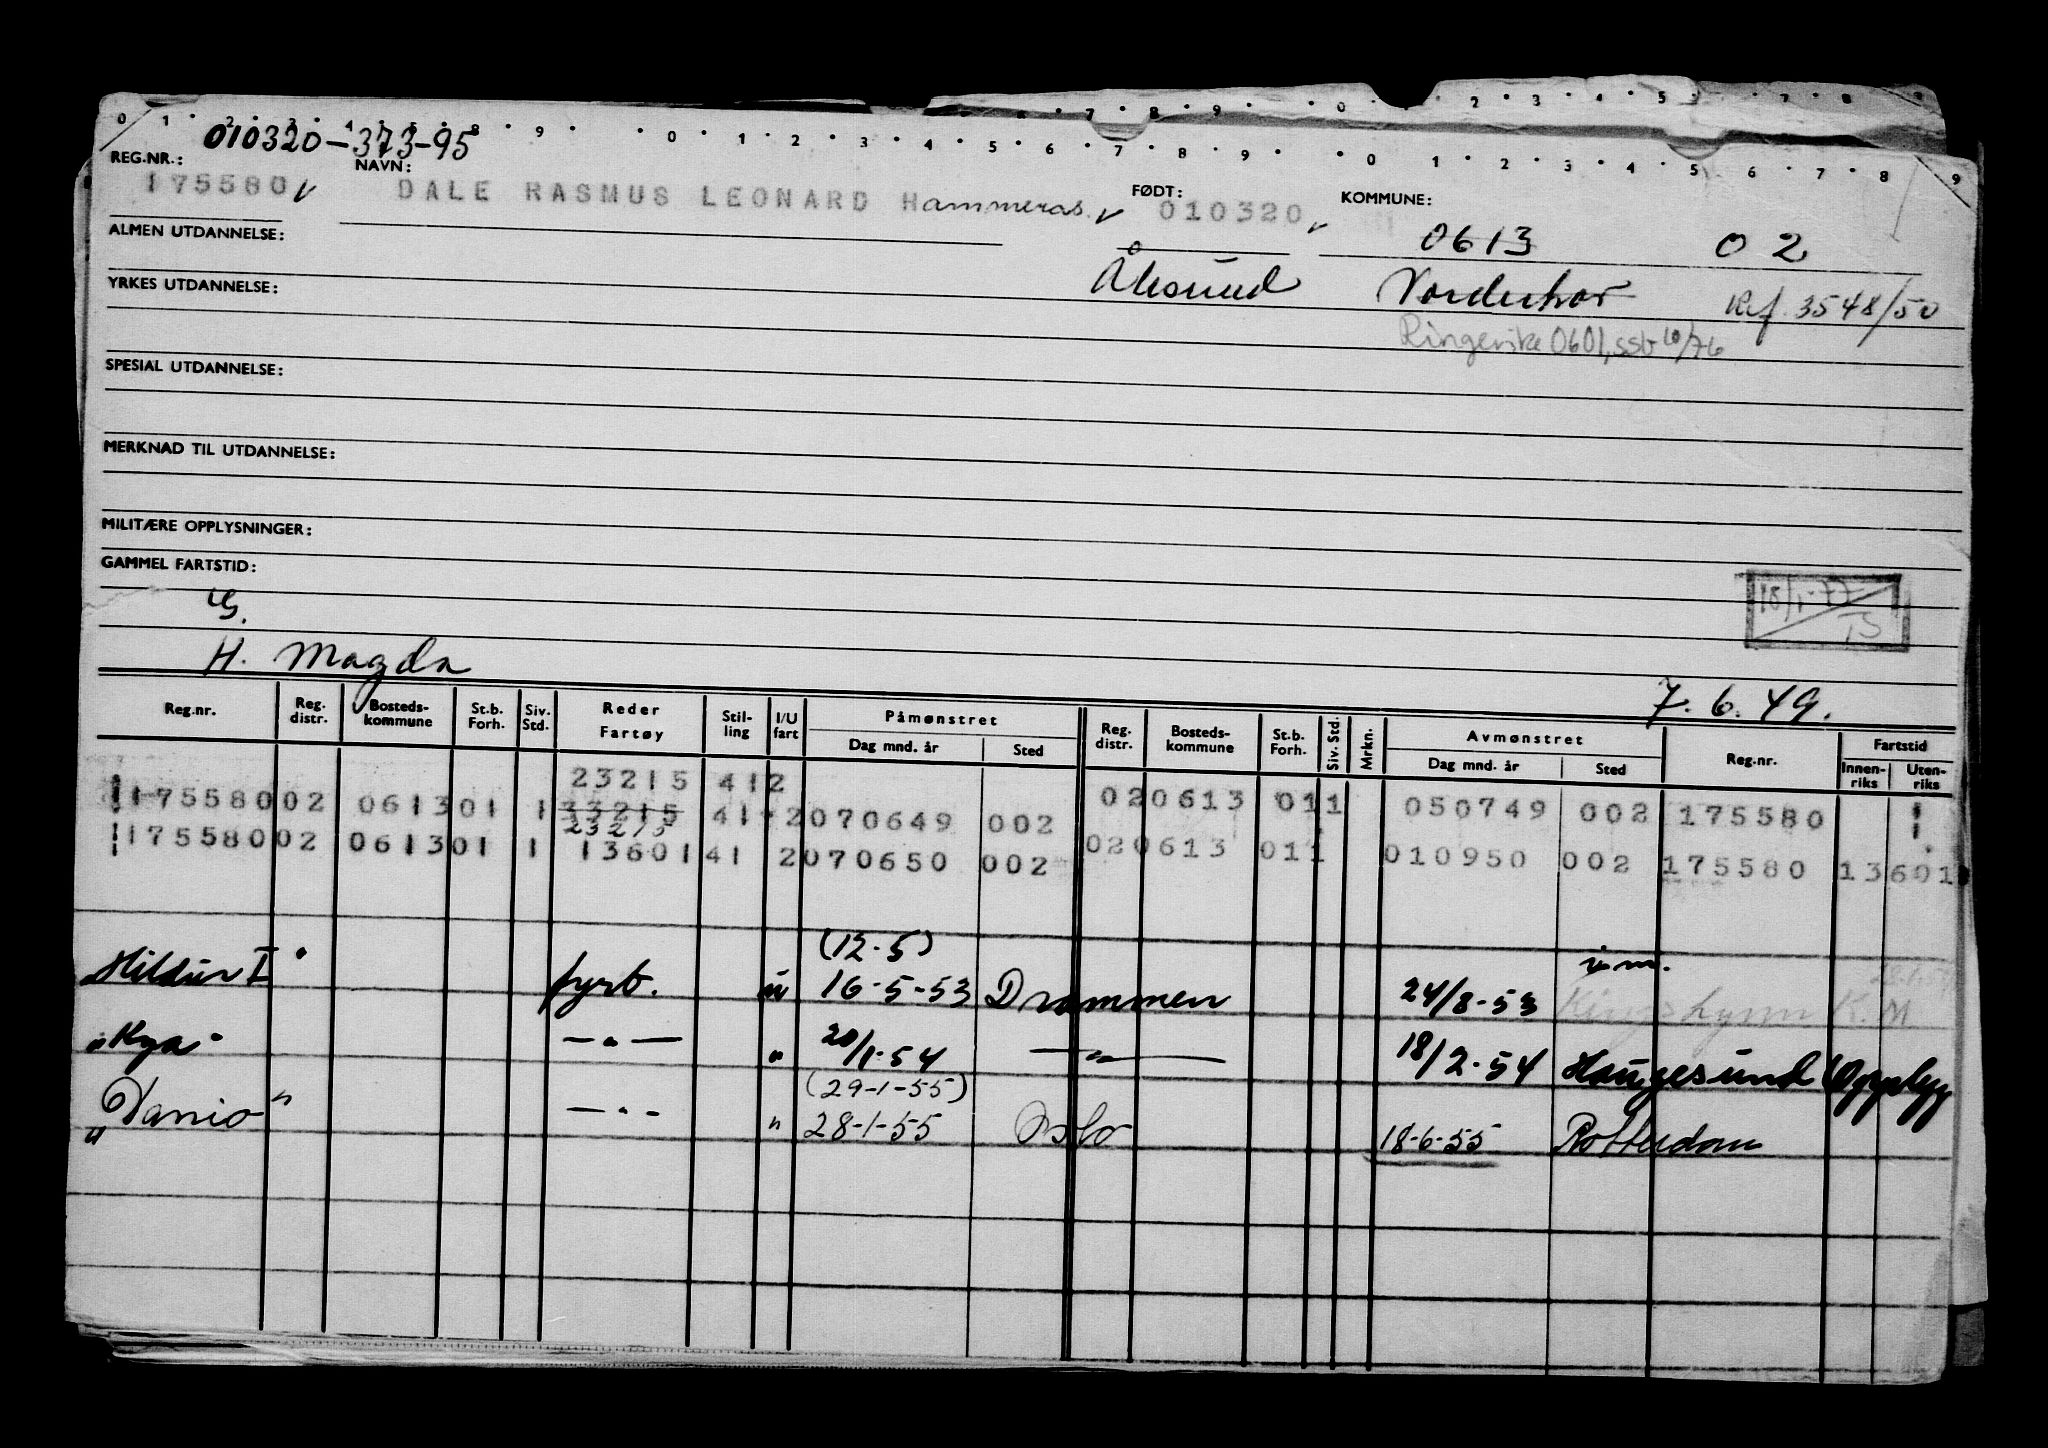 0 1 9 0 1 2 3 4 5 6 7 8 9 0 1 2 3 4 5 6 7 8 9
010320-373-95
REG.NR.: NAVN: FØDT: KOMMUNE:
175580 DALE RASMUS LEONARD Hammeras 010320 0613 02
ALMEN UTDANNELSE:
Ålesund Norderhov Ref. 3548/50
YRKES UTDANNELSE:
Ringerike 0601, ssb 10/76
SPESIAL UTDANNELSE:
MERKNAD TIL UTDANNELSE:
MILITÆRE OPPLYSNINGER:
GAMMEL FARTSTID:
18/1-77
G.
H. Magda
7.6.49.
Reg.nr. Reg. distr. Bosteds-kommune St.b. Forh. Siv. Std. Reder Fartøy Stil-ling I/U fart Påmønstret Dag mnd. år Sted Reg. distr. Bosteds-kommune St.b. Forh. Siv. Std. Mrkn. Avmønstret Dag mnd. år Sted Reg.nr. Fartstid Innen-riks Uten-riks
23215 412
175580 02 0613 01 1 33215 41 2 070649 002 02 0613 01 1 050749 002 175580 1
23215
175580 02 0613 01 1 13601 41 2 070650 002 02 0613 01 1 010950 002 175580 13601
(12-5)
"Hildur I" fyrb. u 16-5-53 Drammen 24/8-53 Kings Lynn K.M
"Kya" —"— " 20/1-54 —"— 18/2-54 Haugesund Opplegg
(29-1-55)
"Vanio" —"— " 28-1-55 Oslo 18-6-55 Rotterdam